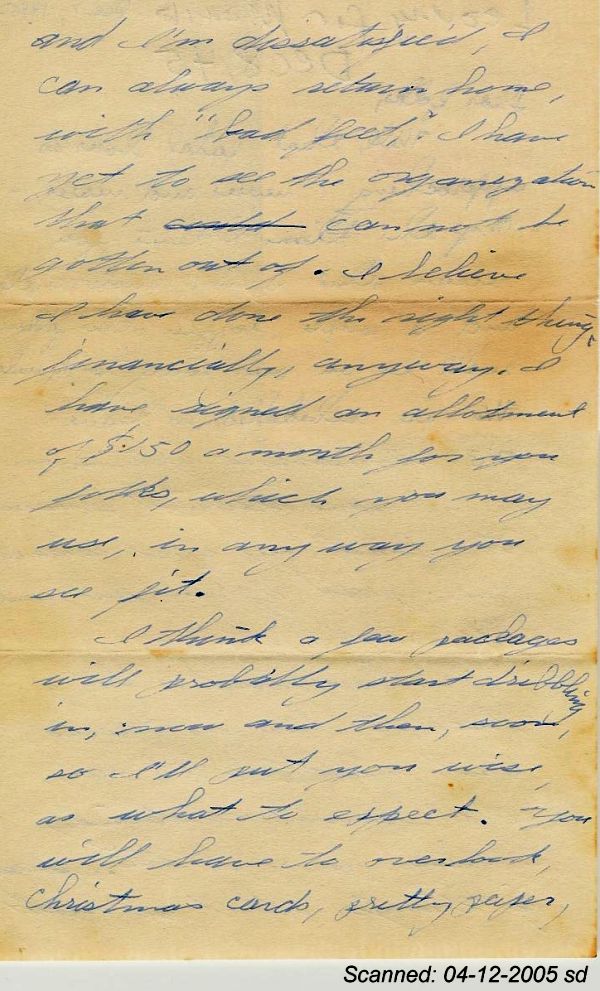 and I'm dissatisfied, I
can always return home,
with "bad feet," I have
yet to see the organization
that could can not be
gotten out of. I believe
I have done the right thing,
financially, anyway. I
have signed an allotment
of $150 a month for you
folks, which you may
use, in any way you
see fit.
I think a few packages
will probably start dribbling
in, now and then, soon,
so I'll put you wise,
as what to expect. You
will have to overlook,
Christmas cards, pretty paper,
Scanned: 04-12-2005 sd